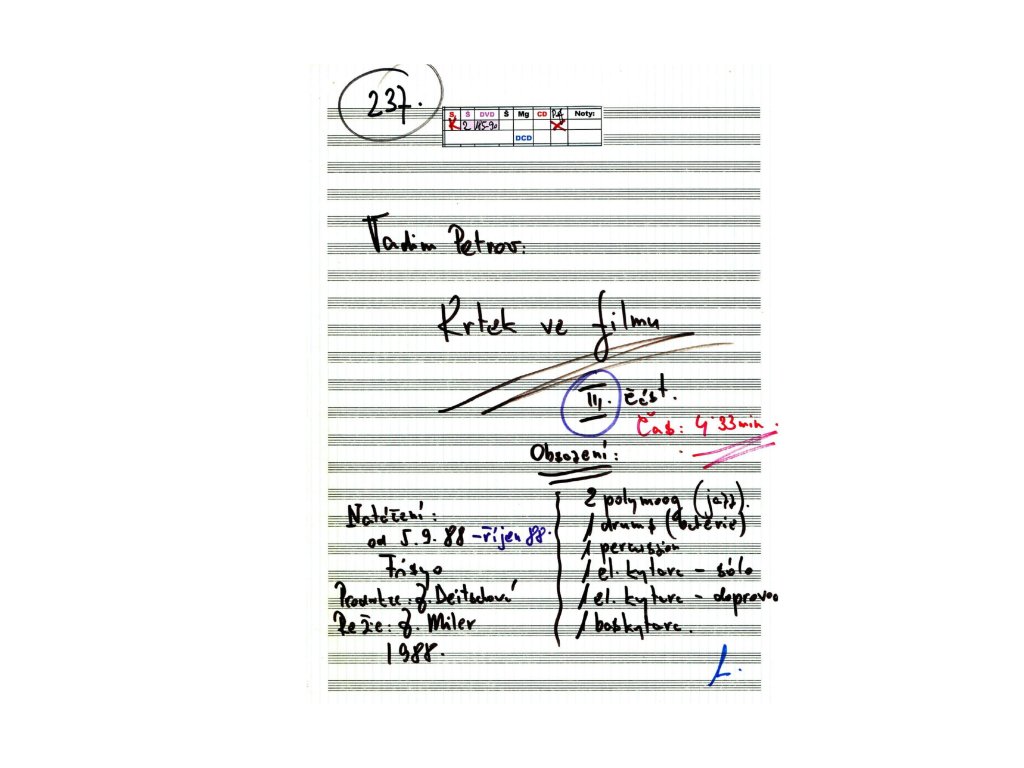 237.
S Š DVD Š Mg CD PA Noty:
2 VI5-90
DCD
Vadim Petrov:
Krtek ve filmu
III. část.
Čas: 4'33 min.
Obsazení:
2 polymoog (jazz).
1 drums (baterie)
1 percussion
1 el. kytara - sólo
1 el. kytara - doprovod
1 baskytara.
Natáčení:
od 5.9.88 - říjen 88.
Produkce: J. Deitschová
Režie: Z. Miler
1988.